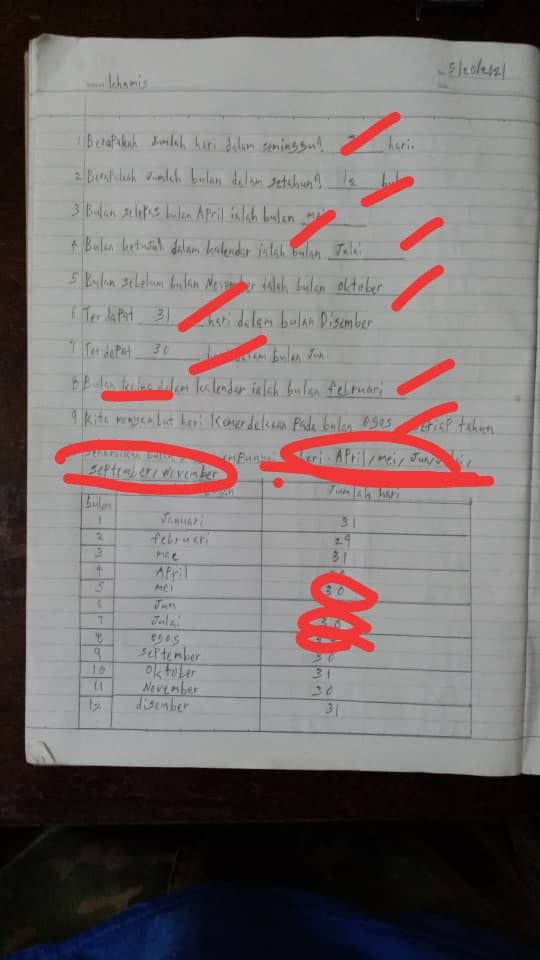 khamis
5/10/2021
1 Berapakah Jumlah hari dalam seminggu? hari.
2 Berapakah Jumlah bulan dalam setahun? 12
3 Bulan selepas bulan April ialah bulan mei
4 Bulan ketujuh dalam kalendar ialah bulan Julai
5 Bulan sebelum bulan November ialah bulan oktober
6 Terdapat 31 hari dalam bulan Disember
7 Terdapat 30 hari dalam bulan Jun
8 Bulan kedua dalam kalendar ialah bulan februari
9 Kita menyambut hari Kemerdekaan Pada bulan ogos setiap tahun
bulan hari. April, mei, Jun,
September, November
bulan Jumlah hari
1 Januari 31
2 februari 29
3 mac 31
4 April
5 mei 30
6 Jun
7 Julai 30
8 ogos
9 September 30
10 Oktober 31
11 November 30
12 disember 31